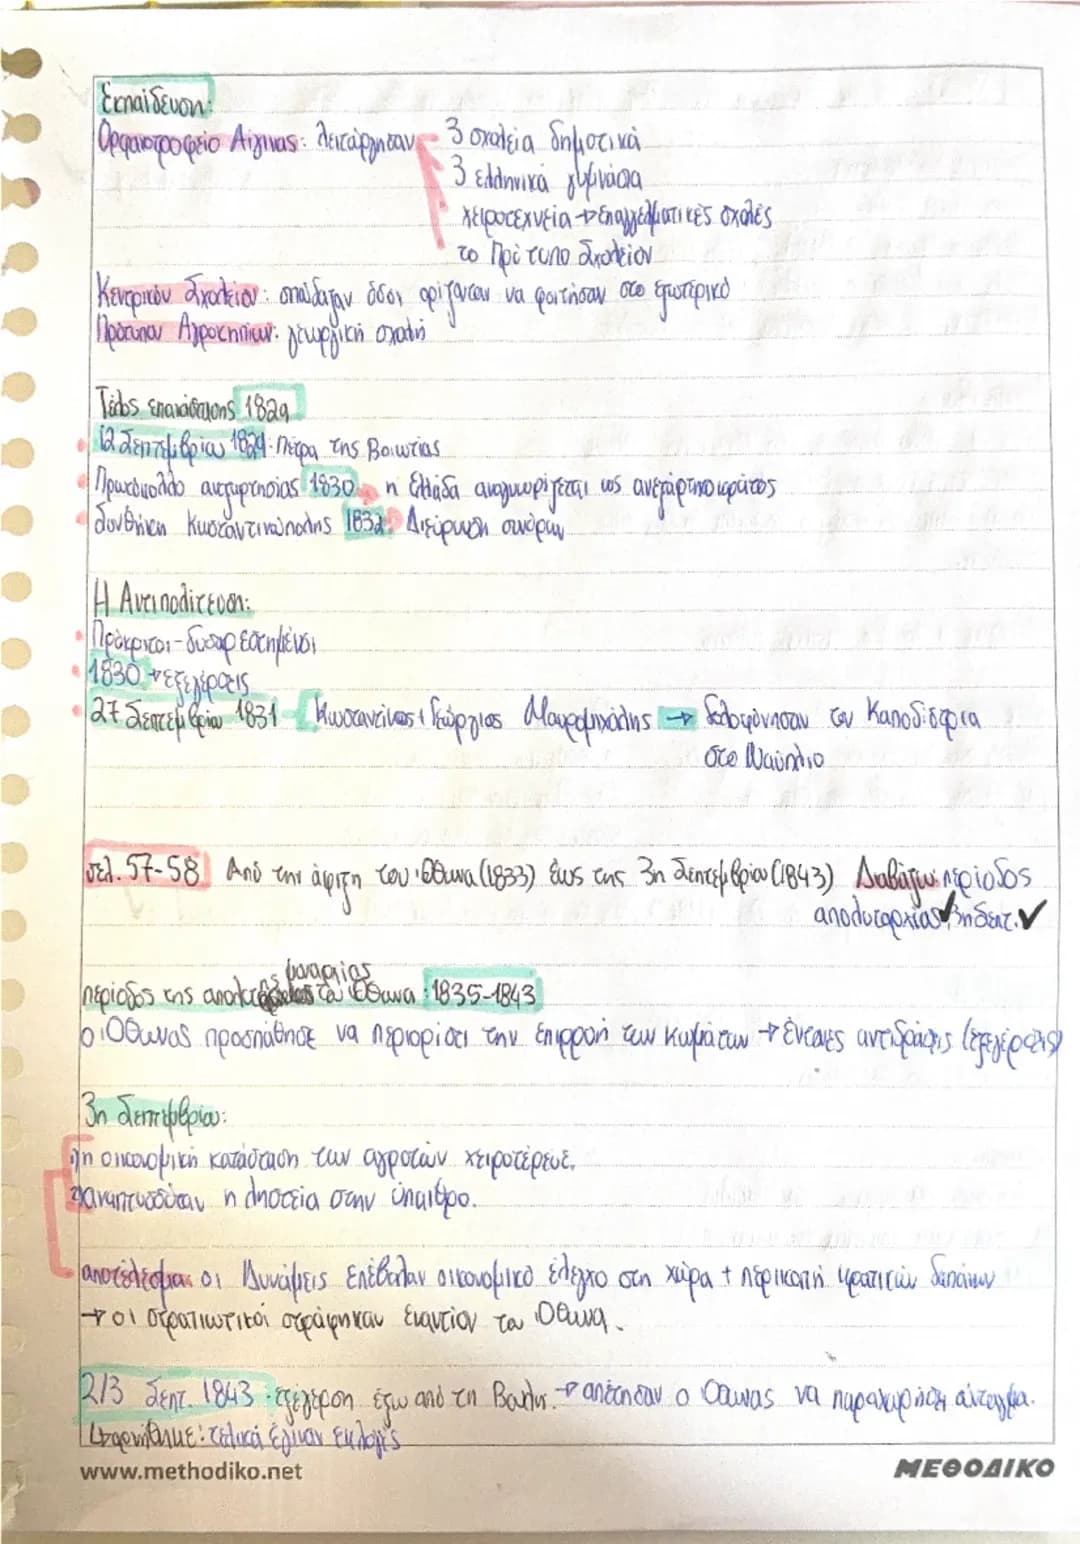 Εκπαίδευση:
Ορφανοτροφείο Αίγινας: λειτούργησαν 3 σχολεία δημοτικά
3 ελληνικά γυμνάσια
χειροτεχνεία → επαγγελματικές σχολές
το Πρότυπο Σχολείον
Κεντρικόν Σχολείον: σπούδαζαν όσοι ορίζονταν να φοιτήσουν στο εξωτερικό
Πρότυπον Αγροκήπιον: γεωργική σχολή
Τέλος επανάστασης 1829
12 Σεπτεμβρίου 1829: Πέτρα της Βοιωτίας
Πρωτόκολλο ανεξαρτησίας 1830: η Ελλάδα αναγνωρίζεται ως ανεξάρτητο κράτος
Συνθήκη Κωσταντινούπολης 1832: Διεύρυνση συνόρων
Η Αντιπολίτευση:
Πρόκριτοι - δυσαρεστημένοι
1830 → εξεγέρσεις
27 Σεπτεμβρίου 1831 Κωσταντίνος + Γεώργιος Μαυρομιχάλης → δολοφόνησαν τον Καποδίστρια
στο Ναύπλιο
σελ. 57-58 Από την άφιξη του Όθωνα (1833) έως της 3η Σεπτεμβρίου (1843) Διαβάζω: περίοδος
απολυταρχίας ✓ 3η Σεπτ. ✓
μοναρχίας
περίοδος της απόλυτης του Όθωνα: 1835-1843
ο Όθωνας προσπάθησε να περιορίσει την επιρροή των κομμάτων → έντονες αντιδράσεις (εξεγέρσεις)
3η Σεπτεμβρίου:
1) η οικονομική κατάσταση των αγροτών χειροτέρευε.
2) αναπτυσσόταν η ληστεία στην ύπαιθρο.
αποτέλεσμα: οι Δυνάμεις επέβαλαν οικονομικό έλεγχο στη χώρα + περικοπή κρατικών δαπανών
→ οι στρατιωτικοί στράφηκαν εναντίον του Όθωνα.
2/3 Σεπτ. 1843: εξέγερση έξω από τη Βουλή. → απέτησαν ο Όθωνας να παραχωρήσει σύνταγμα.
↳ αρνήθηκε: τελικά έγιναν εκλογές
www.methodiko.net ΜΕΘΟΔΙΚΟ